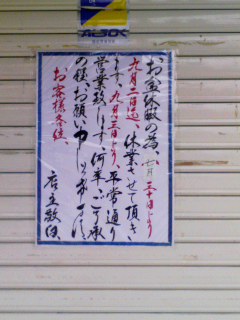 ALSOK
お盆休暇の為、八月三十日より
九月二日迄、休業させて頂き
ます、九月三日より、平常通り
営業致します、何卒、ご了承
の程、お願い申し上げます
お客様各位、
店主敬白、